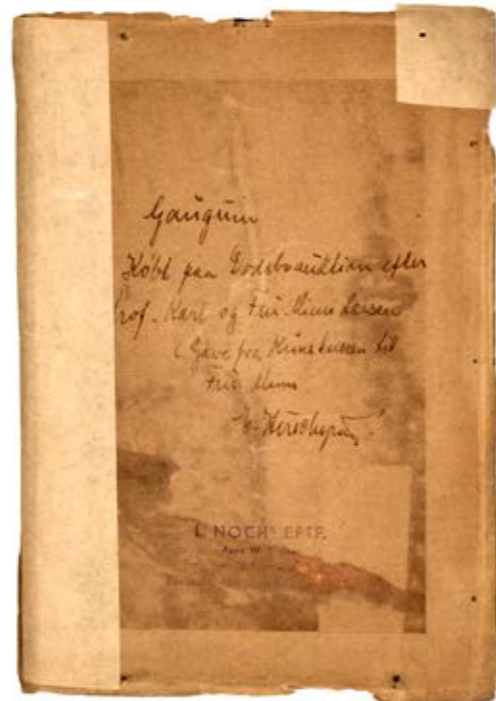 Gauguin
Købt paa Dødsboauktion efter
Prof. Karl og Fru Mimi Larsen
(Gave fra Kunstneren til
Fru Mimi
E. Hirschsprung!
L. NOCHS EFTF.